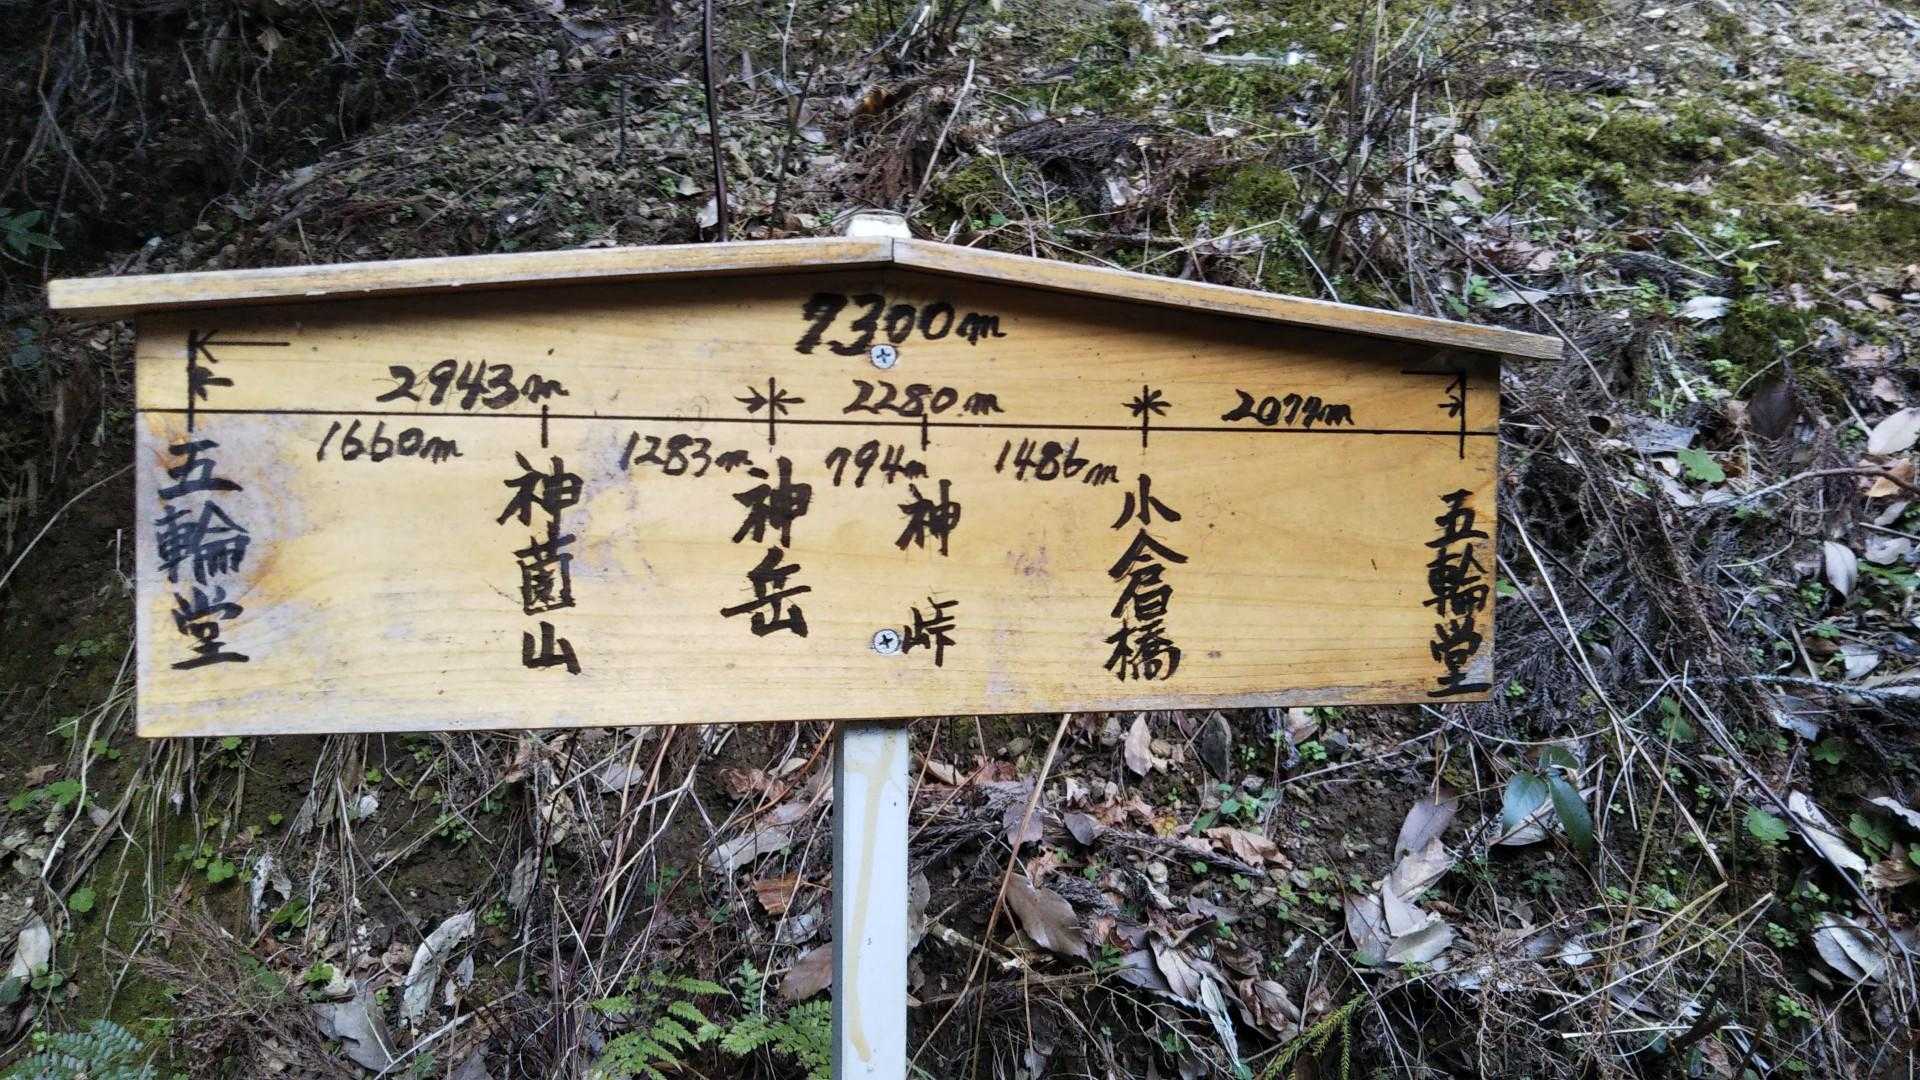 7300m
2943m
2280m
2077m
1660m
1283m
794m
1486m
五輪堂
神薗山
神岳
神峠
小倉橋
五輪堂